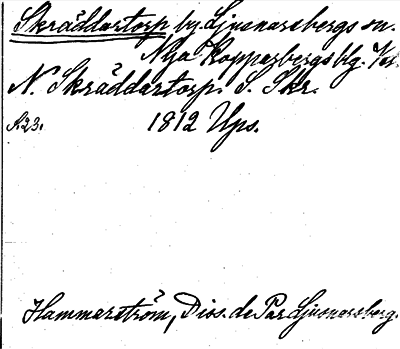 Skräddartorp by. Ljusnarsbergs sn.
Nya Kopparbergs blg.
N. Skräddartorp. S. Skr.
A23. 1812 Ups.
Hammarström, Diss. de Par. Ljusnarsberg.